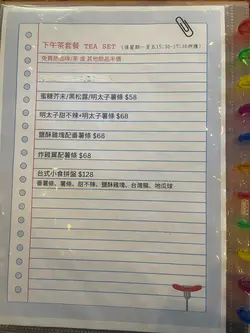 下午茶套餐 TEA SET (逢星期一至五15:30-17:30供應)
免費熱咖啡/茶 或 其他飲品半價
蜜糖芥末/黑松露/明太子薯條 $58
明太子甜不辣+明太子薯條 $68
鹽酥雞塊配番薯條 $68
炸雞翼配薯條 $68
台式小食拼盤 $128
番薯條、薯條、甜不辣、鹽酥雞塊、台灣腸、地瓜球